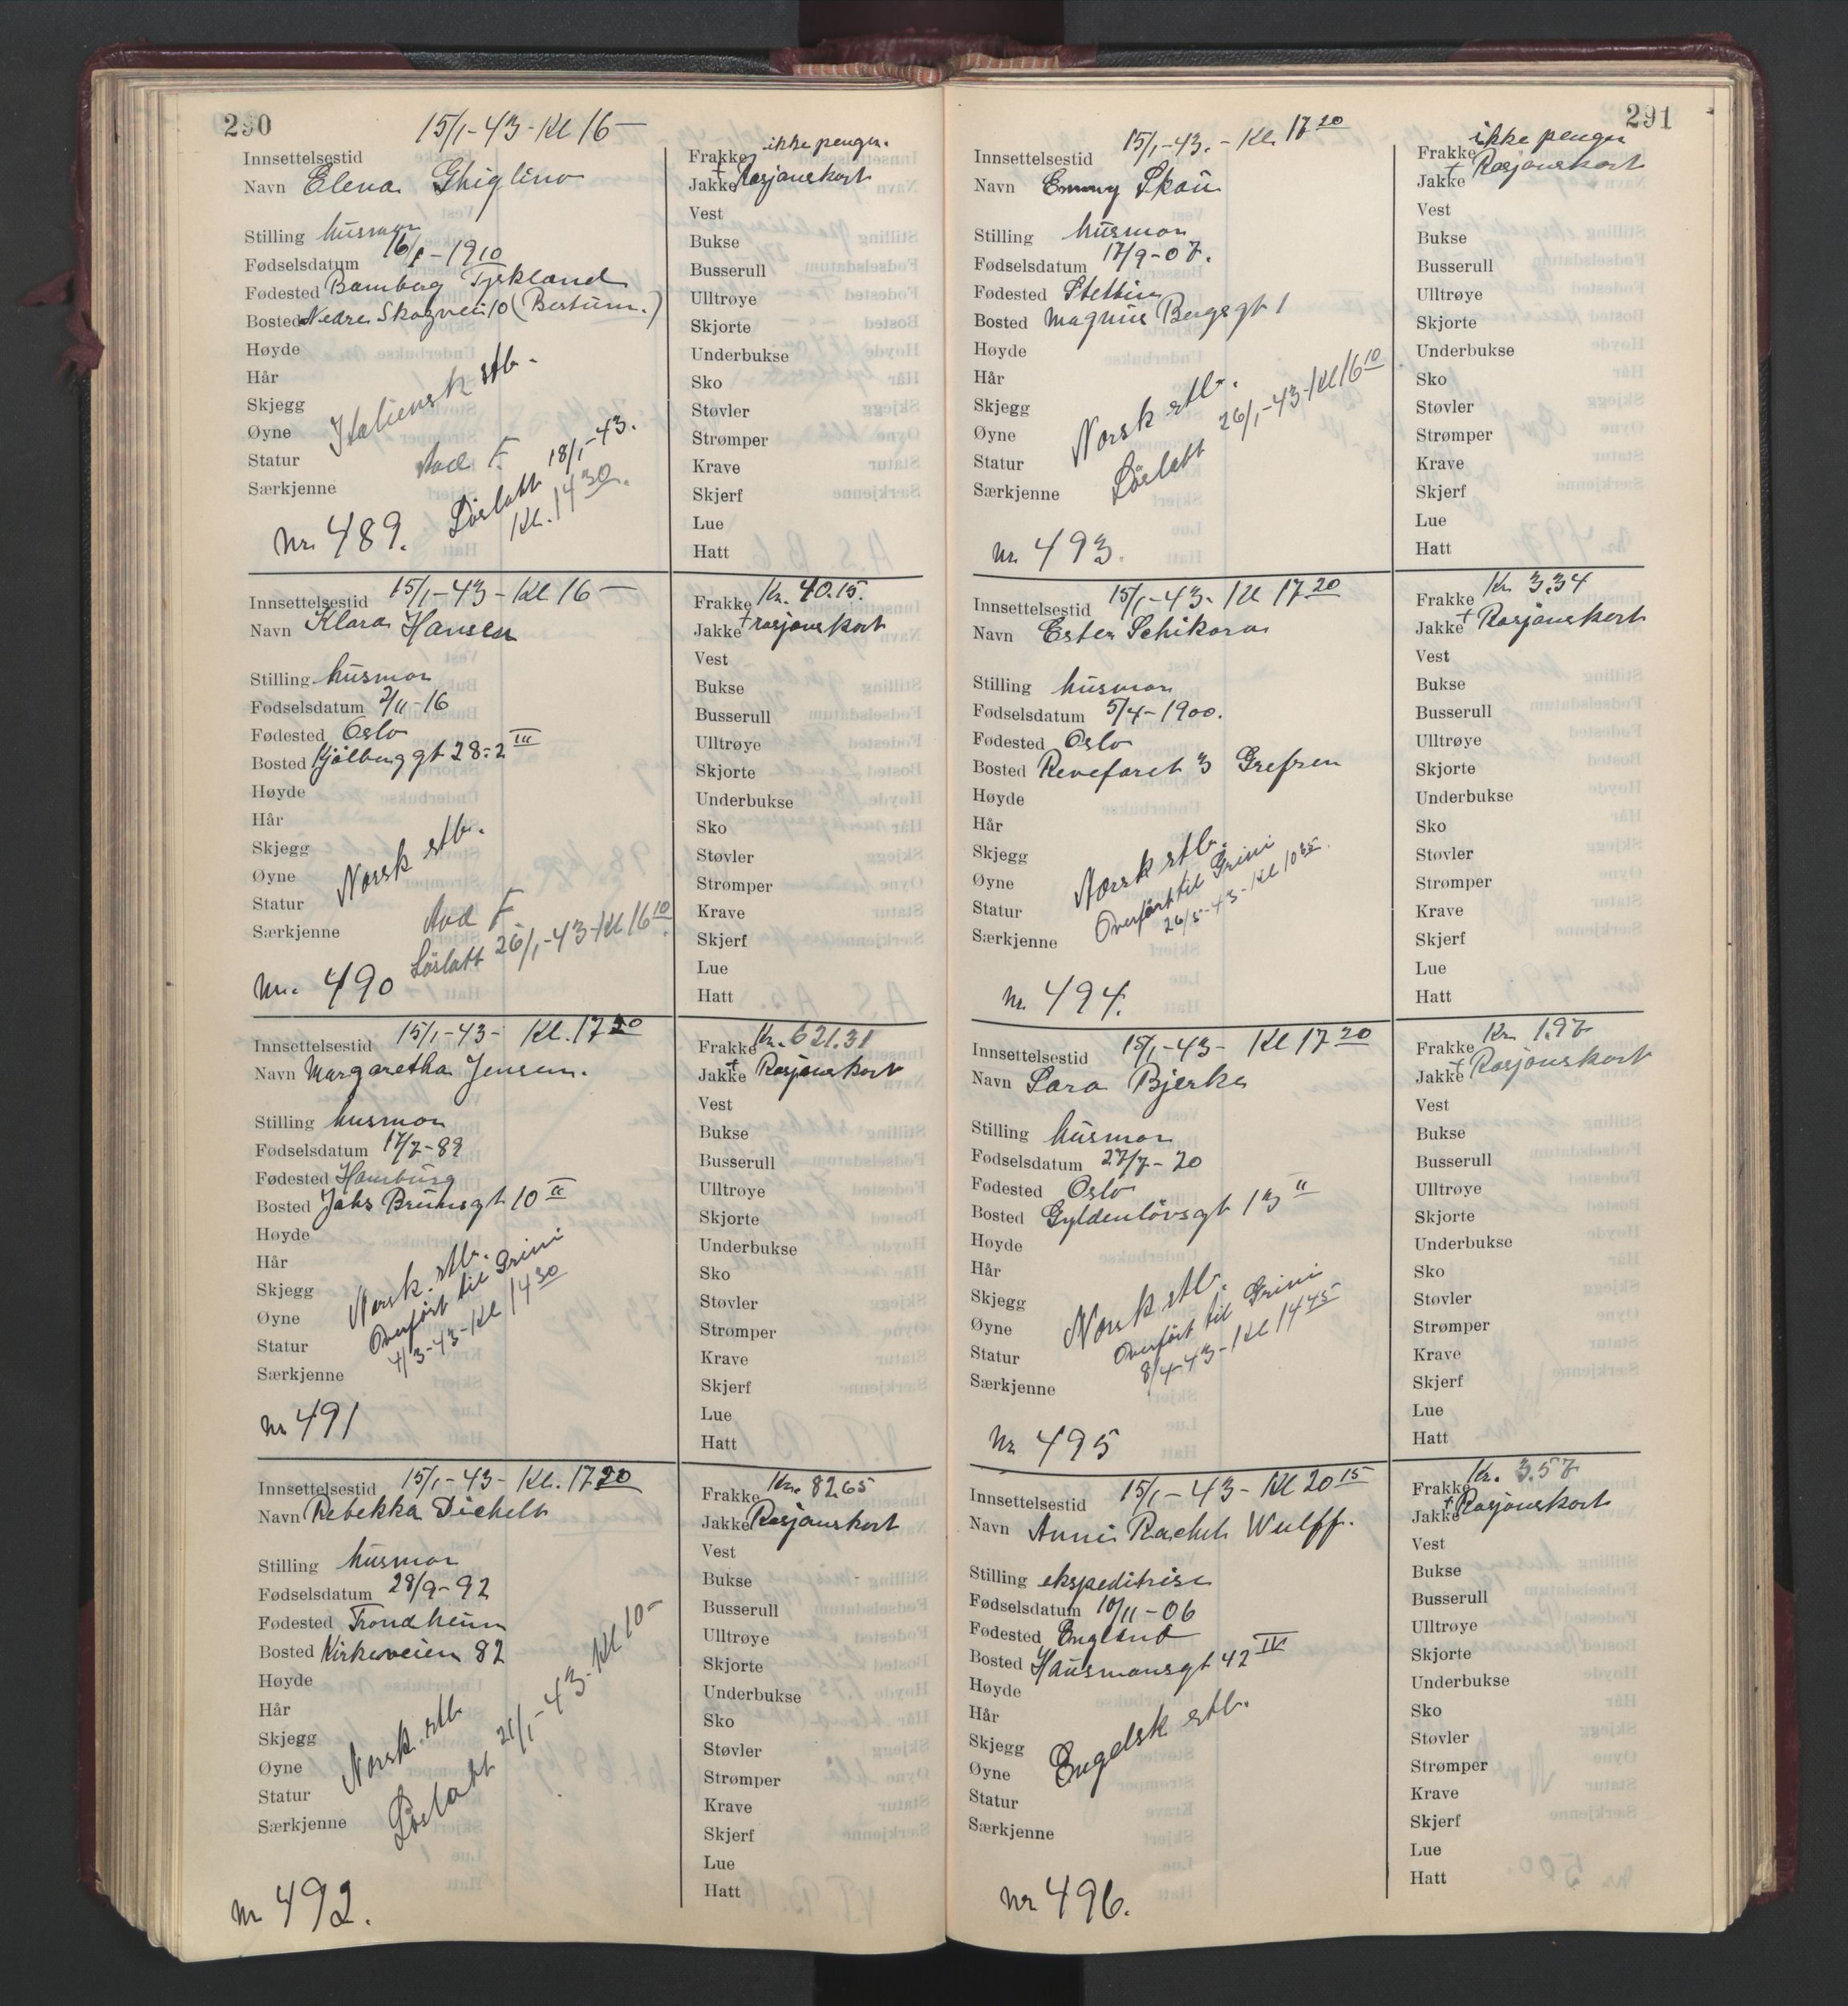 290
15/1-43-Kl 16-
Innsettelsestid
Navn Elena Ghiglino
Stilling husmor
Fødselsdatum 16/1-1910
Fødested Bamberg Tyskland
Bosted Nedre Skogvei 10 (Bestum.)
Høyde
Hår
Skjegg
Øyne
Statur
Særkjenne
Italiensk stb.
Avd F.
Löslatt 18/1-43.
Kl. 14 30.
Nr. 489.
ikke penger.
Frakke
Jakke + Rasjonskort
Vest
Bukse
Busserull
Ulltrøye
Skjorte
Underbukse
Sko
Støvler
Strømper
Krave
Skjerf
Lue
Hatt
Innsettelsestid 15/1-43-Kl 16-
Navn Klara Hansen
Stilling husmor
Fødselsdatum 2/11-16
Fødested Oslo
Bosted Kjølberggt 28-2 III
Høyde
Hår
Skjegg
Øyne
Statur
Særkjenne
Norsk stb.
Avd F
Löslatt 26/1-43-Kl 16 10.
Nr. 490
Frakke Kr. 40.15.
Jakke + rasjonskort
Vest
Bukse
Busserull
Ulltrøye
Skjorte
Underbukse
Sko
Støvler
Strømper
Krave
Skjerf
Lue
Hatt
Innsettelsestid 15/1-43- Kl. 17 20
Navn Margaretha Jensen.
Stilling husmor
Fødselsdatum 17/7-88
Fødested Hamburg
Bosted Jahs Brunsgt 10 II
Høyde
Hår
Skjegg
Øyne
Statur
Særkjenne
Norsk. stb.
Overfört til Grini
4/3-43-Kl 14 30
Nr 491
Frakke Kr. 621.31
Jakke + Rasjonskort
Vest
Bukse
Busserull
Ulltrøye
Skjorte
Underbukse
Sko
Støvler
Strømper
Krave
Skjerf
Lue
Hatt
Innsettelsestid 15/1-43- Kl. 17 20
Navn Rebekka Dickelt
Stilling husmor
Fødselsdatum 28/9-92
Fødested Trondheim
Bosted Kirkeveien 82
Høyde
Hår
Skjegg
Øyne
Statur
Særkjenne
Norsk. stb
Löslatt 21/1-43-Kl 10-
Nr 492.
Frakke Kr. 82.65
Jakke Rasjonskort
Vest
Bukse
Busserull
Ulltrøye
Skjorte
Underbukse
Sko
Støvler
Strømper
Krave
Skjerf
Lue
Hatt
291
Innsettelsestid 15/1-43.- Kl. 17 20
Navn Emmy Skau
Stilling husmor
Fødselsdatum 17/9-07.
Fødested Stettin
Bosted Magnus Bergsgt 1
Høyde
Hår
Skjegg
Øyne
Statur
Særkjenne
Norsk stb.
Löslatt 26/1-43-Kl 16 10
Nr. 493.
ikke penger
Frakke
Jakke + Rasjonskort
Vest
Bukse
Busserull
Ulltrøye
Skjorte
Underbukse
Sko
Støvler
Strømper
Krave
Skjerf
Lue
Hatt
Innsettelsestid 15/1-43- Kl 17 20
Navn Ester Schikora
Stilling husmor
Fødselsdatum 5/4-1900.
Fødested Oslo
Bosted Revefaret 3 Grefsen
Høyde
Hår
Skjegg
Øyne
Statur
Særkjenne
Norsk stb.
Overfört til Grini
26/5-43-Kl 10 35.
Nr. 494.
Frakke Kr 3.34
Jakke + Rasjonskort
Vest
Bukse
Busserull
Ulltrøye
Skjorte
Underbukse
Sko
Støvler
Strømper
Krave
Skjerf
Lue
Hatt
Innsettelsestid 15/1-43- Kl 17 20
Navn Sara Bjerke
Stilling husmor
Fødselsdatum 27/7-20
Fødested Oslo
Bosted Gyldenlövsgt 13 II
Høyde
Hår
Skjegg
Øyne
Statur
Særkjenne
Norsk stb.
Overfört til Grini
8/4-43-Kl 14 45
Nr 495
Frakke Kr. 1.97
Jakke + Rasjonskort
Vest
Bukse
Busserull
Ulltrøye
Skjorte
Underbukse
Sko
Støvler
Strømper
Krave
Skjerf
Lue
Hatt
Innsettelsestid 15/1-43-Kl 20 15
Navn Anni Rachel Wulff.
Stilling ekspeditrise
Fødselsdatum 10/11-06
Fødested England
Bosted Hausmansgt 42 IV
Høyde
Hår
Skjegg
Øyne
Statur
Særkjenne
Engelsk stb.
Nr 496.
Frakke Kr. 3.57
Jakke + Rasjonskort
Vest
Bukse
Busserull
Ulltrøye
Skjorte
Underbukse
Sko
Støvler
Strømper
Krave
Skjerf
Lue
Hatt